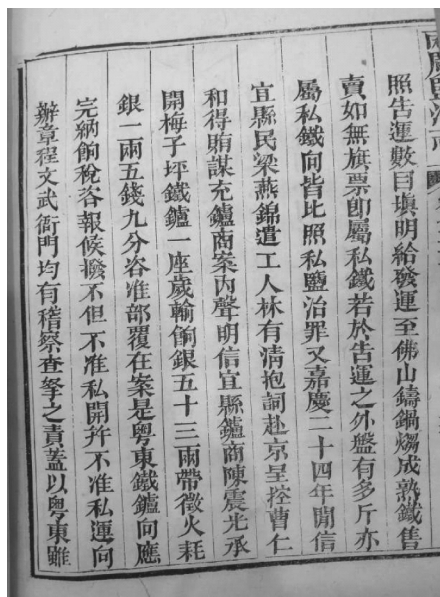 照告運數目填明給發運至佛山鑄鍋煼成熟鐵售
賣如無旗票卽屬私鐵若於告運之外盤有多斤亦
屬私鐵向皆比照私鹽治罪又嘉慶二十四年間信
宜縣民梁燕錦遣工人林有淸抱詞赴京呈控曹仁
和得賄謀充鑪商案內聲明信宜縣鑪商陳震光承
開梅子坪鐵鑪一座歲輸餉銀五十三兩帶徵火耗
銀一兩五錢九分咨准部覆在案是粵東鐵鑪向應
完納餉稅咨報候撥不但不准私開幷不准私運向
辦章程文武衙門均有稽察查拏之責蓋以粵東雖